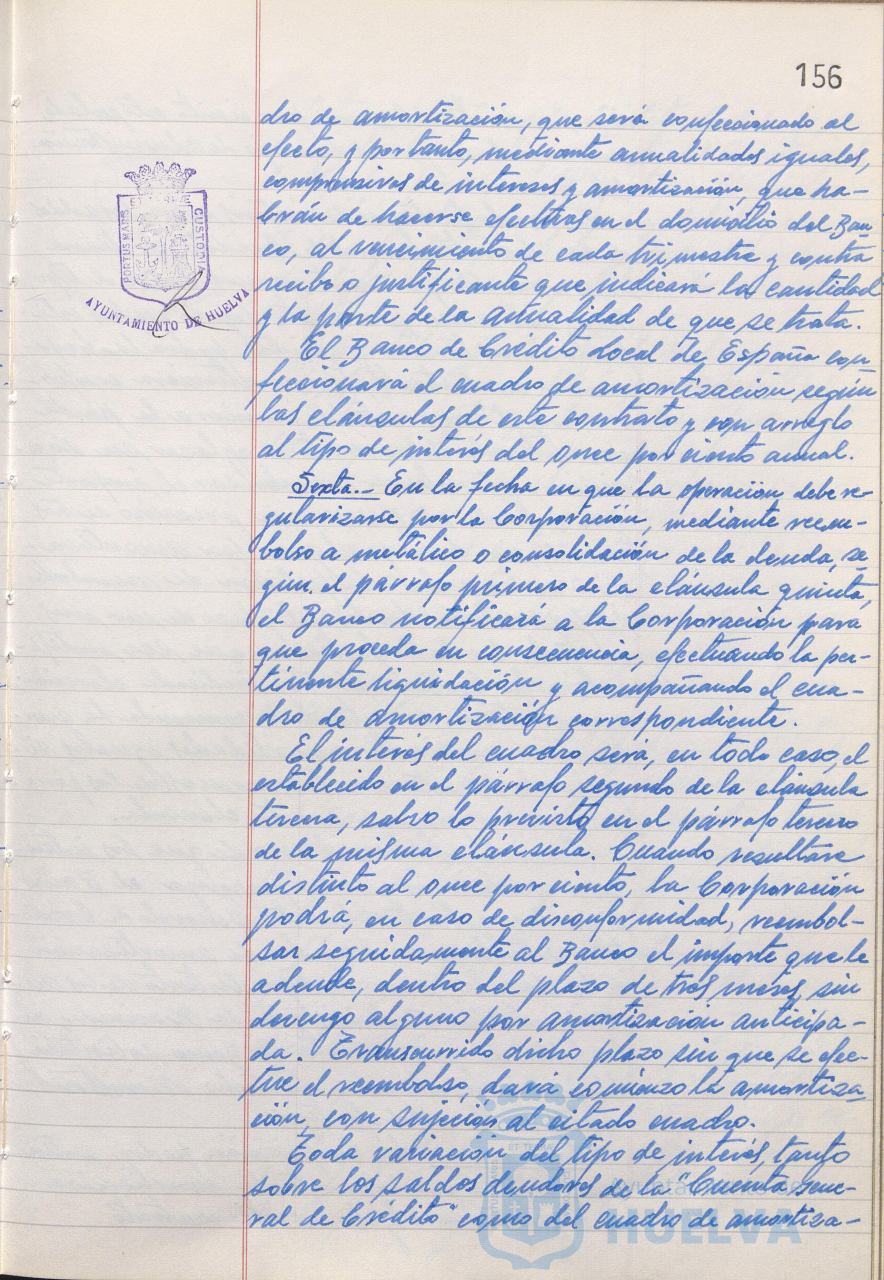 156
dro de amortización, que será confeccionado al
efecto, y por tanto, mediante anualidades iguales,
comprensivas de intereses y amortización, que ha-
brán de hacerse efectivas en el domicilio del Ban-
co, al vencimiento de cada trimestre y contra
recibo o justificante que indicará la cantidad
y la parte de la anualidad de que se trata.
El Banco de Crédito Local de España con-
feccionará el cuadro de amortización según
las cláusulas de este contrato y con arreglo
al tipo de interés del once por ciento anual.
Sexta.- En la fecha en que la operación debe re-
gularizarse por la Corporación, mediante reem-
bolso a metálico o consolidación de la deuda, se-
gún el párrafo primero de la cláusula quinta,
el Banco notificará a la Corporación para
que proceda en consecuencia, efectuando la per-
tinente liquidación y acompañando el cua-
dro de amortización correspondiente.
El interés del cuadro será, en todo caso, el
establecido en el párrafo segundo de la cláusula
tercera, salvo lo previsto en el párrafo tercero
de la misma cláusula. Cuando resultare
distinto al once por ciento, la Corporación
podrá, en caso de disconformidad, reembol-
sar seguidamente al Banco el importe que le
adeude, dentro del plazo de tres meses, sin
devengo alguno por amortización anticipa-
da. Transcurrido dicho plazo sin que se efec-
túe el reembolso, dará comienzo la amortiza-
ción, con sujeción al citado cuadro.
Toda variación del tipo de interés, tanto
sobre los saldos deudores de la "Cuenta gene-
ral de Crédito" como del cuadro de amortiza-
PORTUS MARIS
ET TERRE
CUSTODIA
AYUNTAMIENTO DE HUELVA
ET TERRE
Ayuntamiento de
HUELVA